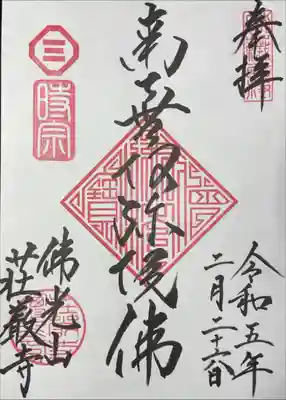 奉拝
時宗
南無阿弥陀佛
令和五年
二月二十六日
佛光山
荘厳寺